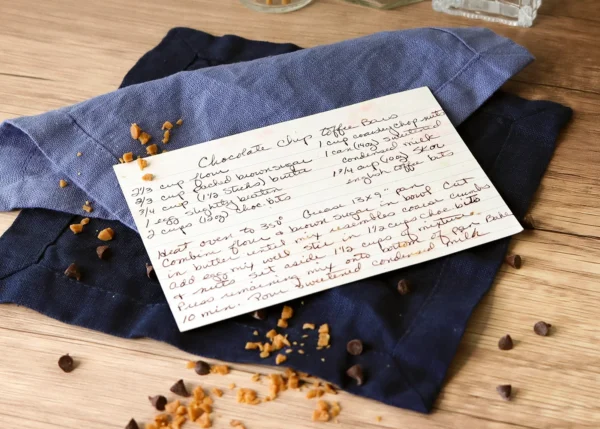 Chocolate Chip Toffee Bars
2 1/3 cup flour
2/3 cup packed brown sugar
3/4 cup (1 1/2 sticks) butter
1 egg slightly beaten
2 cups (12oz) choc bits
1 cup coarsley chop nuts
1 can (14oz) sweetened
condensed milk
1 3/4 cup (10oz) SKOR
english toffee bits
Heat oven to 350° Grease 13x9" pan
Combine flour & brown sugar in bowl Cut
in butter until mix resembles coarse crumbs
add egg mix well stir in 1 1/2 cups choc bits
& nuts Set aside 1 1/2 cups of mixture.
Press remaining mix onto bottom of pan Bake
10 min. Pour sweetened condensed milk